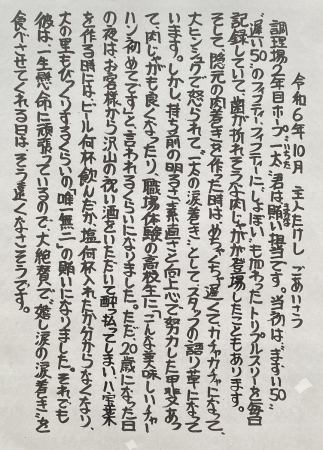 令和6年10月 主人たけし ごあいさつ
調理場2年目ホープ"一太"君は賄い担当です。当初は"まずい50"
"遅い50"のフィフティ・フィフティーに、"しょぼい"も加わったトリプルスリーを毎日
記録していて、歯が折れそうな肉じゃがが登場したこともあります。
そして、隠元の肉巻きを作った時は、めちゃくちゃ遅くてガチャガチャになって、
大ヒンシュクで怒られて、"一太の涙巻き"としてスタッフの語り草になって
います。しかし、持ち前の明るさ、素直さと向上心で努力した甲斐あっ
て、肉じゃがも良くなったり、職場体験の高校生に「こんな美味しいチャー
ハン初めてです」と言われるくらいになりました。ただ、20歳になった日
の夜はお客様から沢山の祝い酒をいただいて酔っ払ってしまい、八宝菜
を作る時には、ビール何杯飲んだか、塩何杯入れたか分からなくなり、
犬の里もびっくりするくらいの「唯一無二」の賄いになりました。それでも
彼は一生懸命に頑張っているので、大絶賛で"嬉し涙の涙巻き"を
食べさせてくれる日は、そう遠くなさそうです。